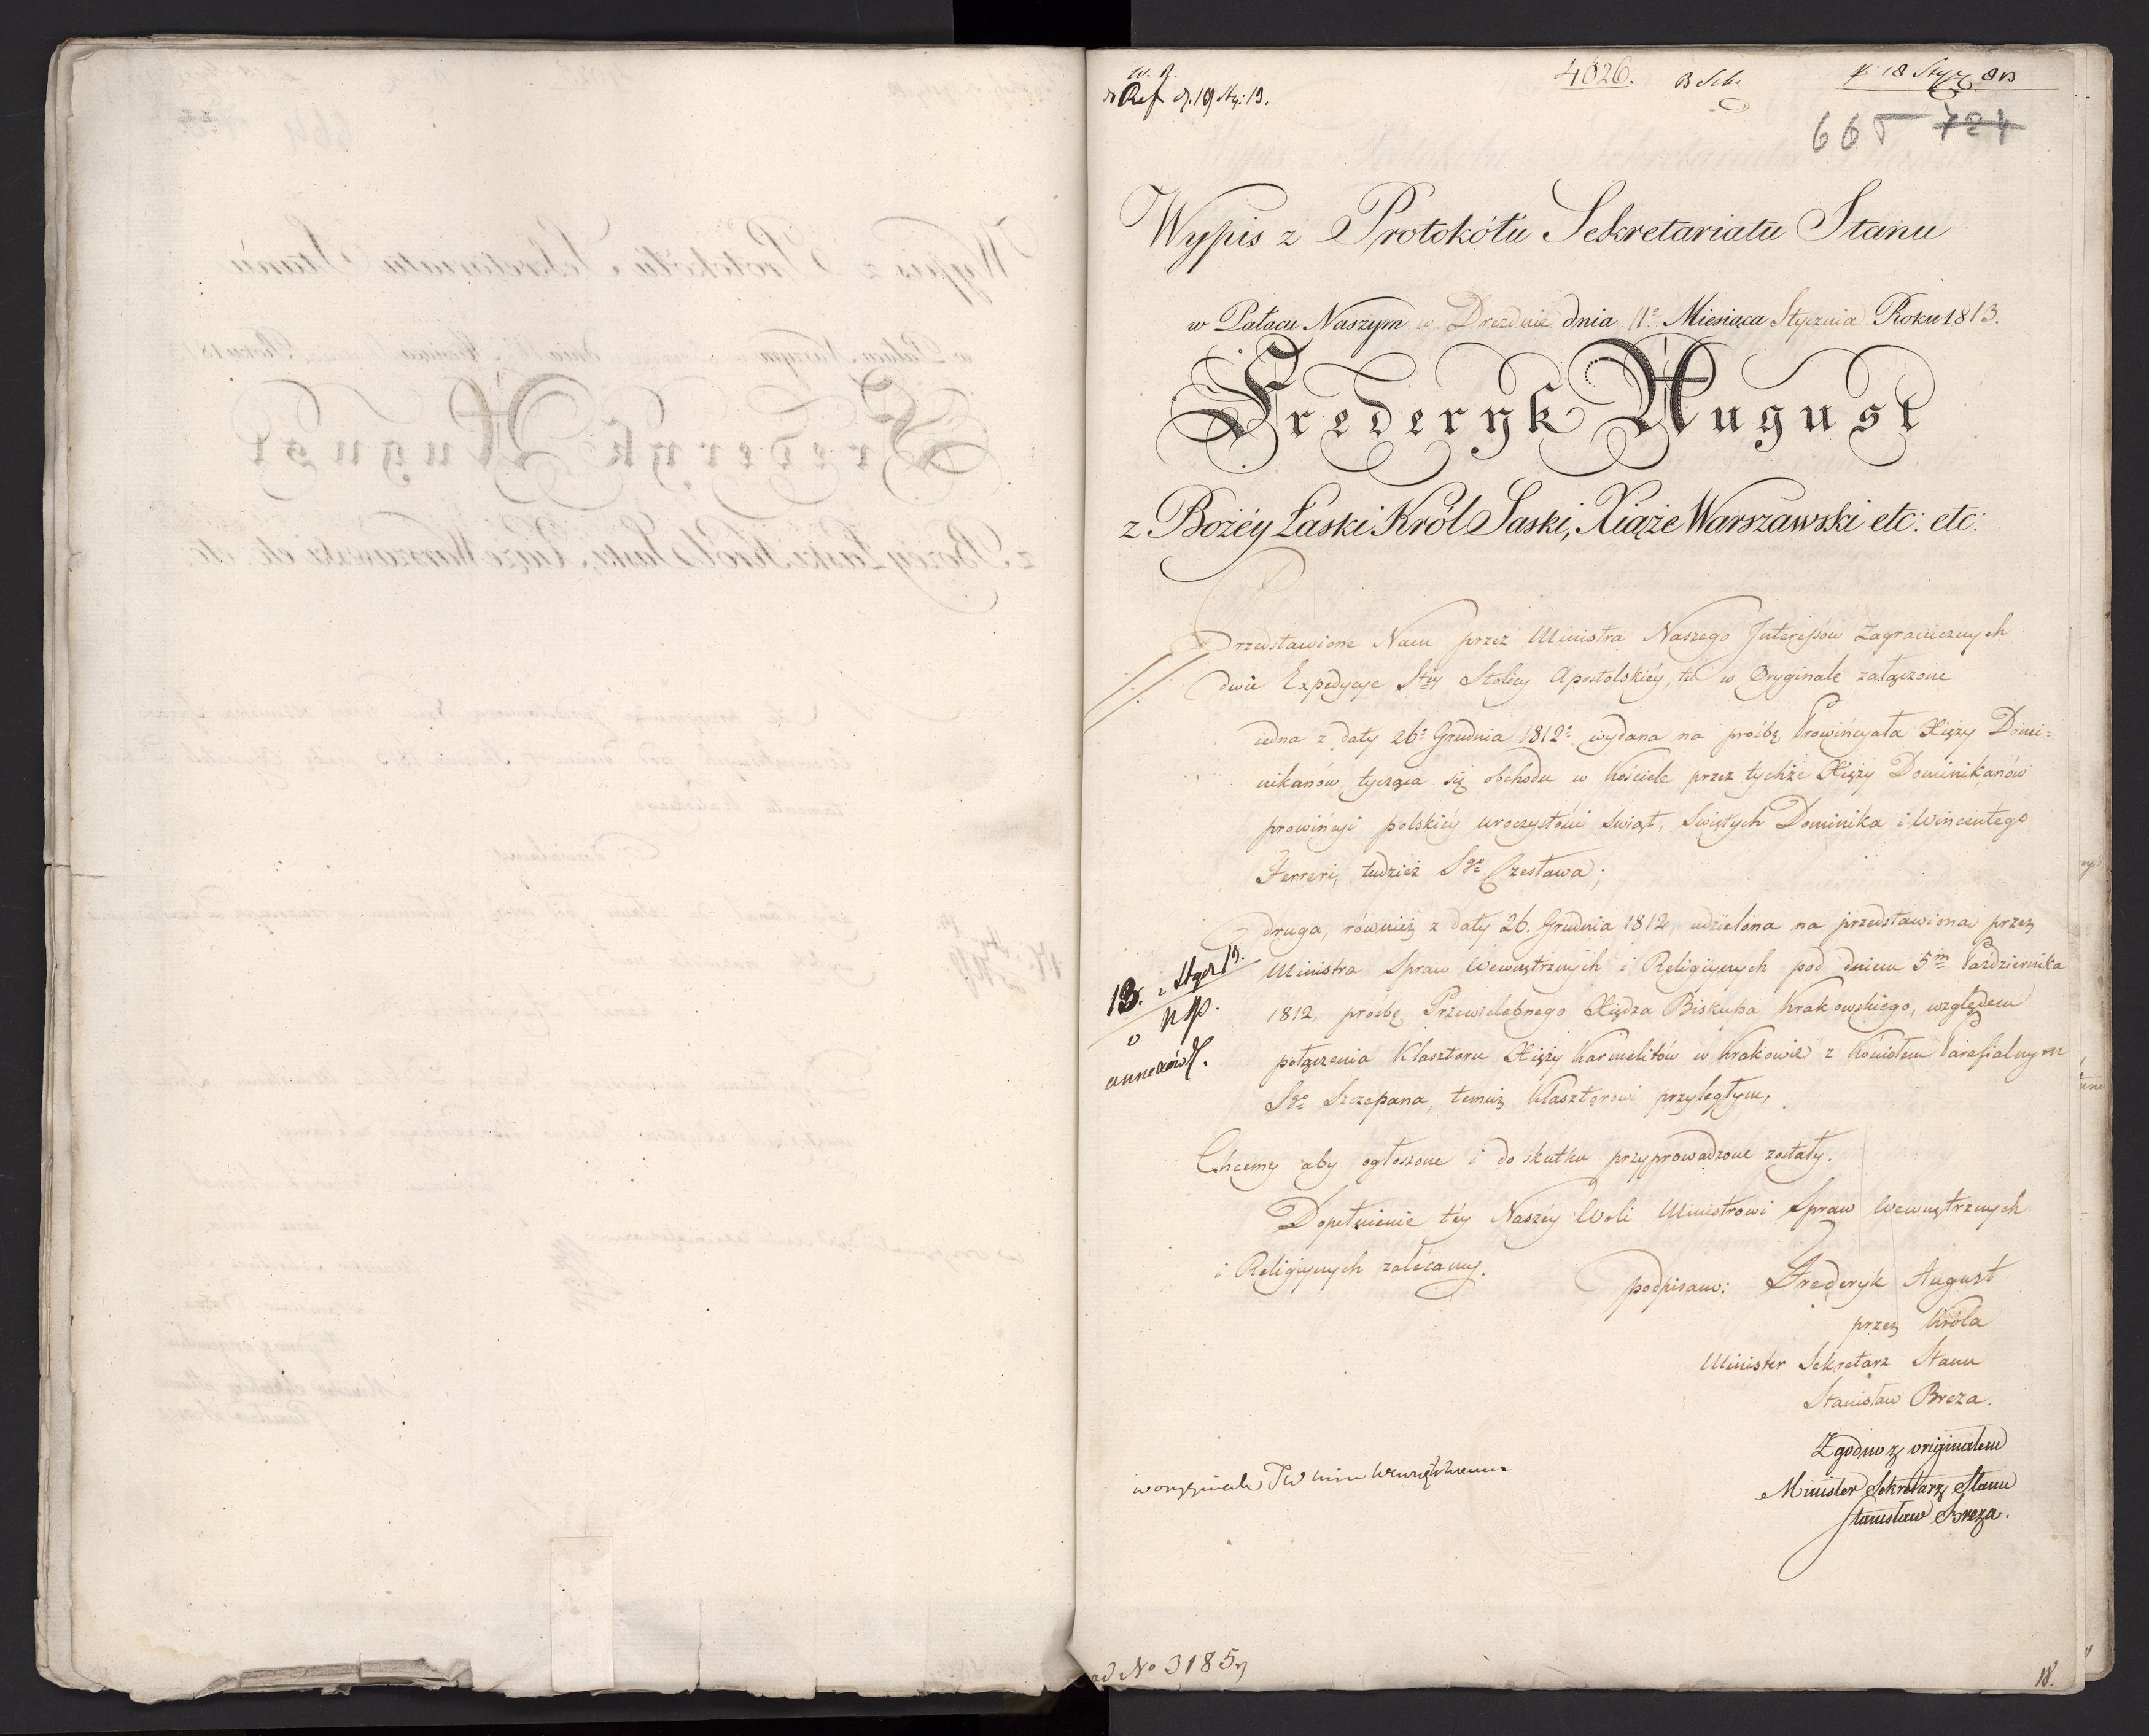 4026.
665 724
Wypis z Protokółu Sekretariatu Stanu
w Pałacu Naszym w Dreźnie dnia 11º Miesiąca Stycznia Roku 1813.
Fryderyk August
z Bożéy Łaski Król Saski, Xiąże Warszawski etc: etc:
Przedstawione Nam przez Ministra Naszego Interessów Zagranicznych
dwie Expedycye Stéy Stolicy Apostolskiéy, tu w Oryginale załączone
iedna z daty 26º Grudnia 1812º wydana na prośbę Prowincyała Xięży Domi=
nikanów tycząca się obchodu w kościele przez tychże Xięży Dominikanów
prowincyi polskiéy uroczystości świąt, Świętych Dominika i Wincentego
Ferreri, tudzież Sgo Czesława;
druga, również z daty 26. Grudnia 1812, udzielona na przedstawioną przez
Ministra Spraw Wewnętrznych i Religiynych pod dniem 5m Października
1812, prośbę Przewielebnego Xiędza Biskupa Krakowskiego, względem
połączenia Klasztoru Xięży Karmelitów w Krakowie z kościołem Parafialnym
Sgo Szczepana, temuż klasztorowi przyległym,
Chcemy aby ogłoszone i do skutku przyprowadzone zostały.
Dopełnienie téy Naszéy Woli Ministrowi Spraw Wewnętrznych
i Religiynych zalécamy.
podpisano: Fryderyk August
przez Króla
Minister Sekretarz Stanu
Stanisław Breza.
Zgodno z originałem
Minister Sekretarz Stanu
Stanisław Breza.
ad No 3185
18.